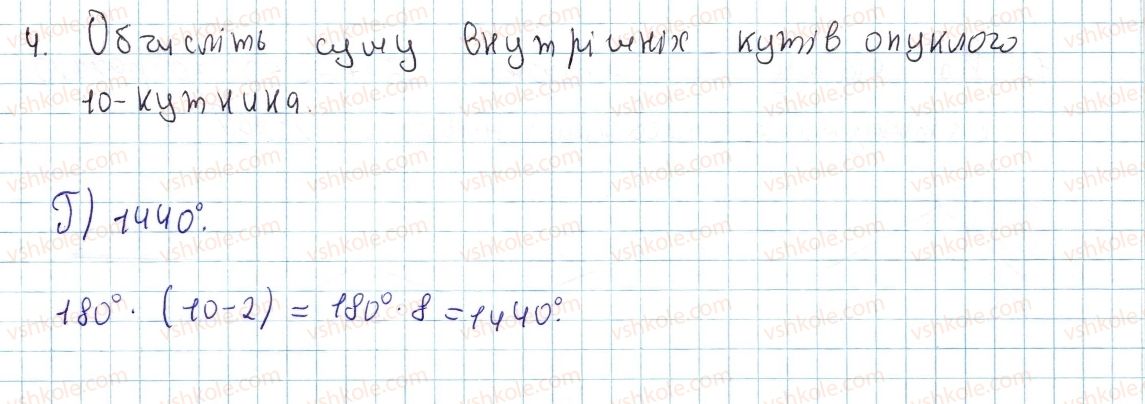 4. Обчисліть суму внутрішніх кутів опуклого
10-кутника.
Г) 1440°.
180° · (10-2) = 180° · 8 = 1440°.